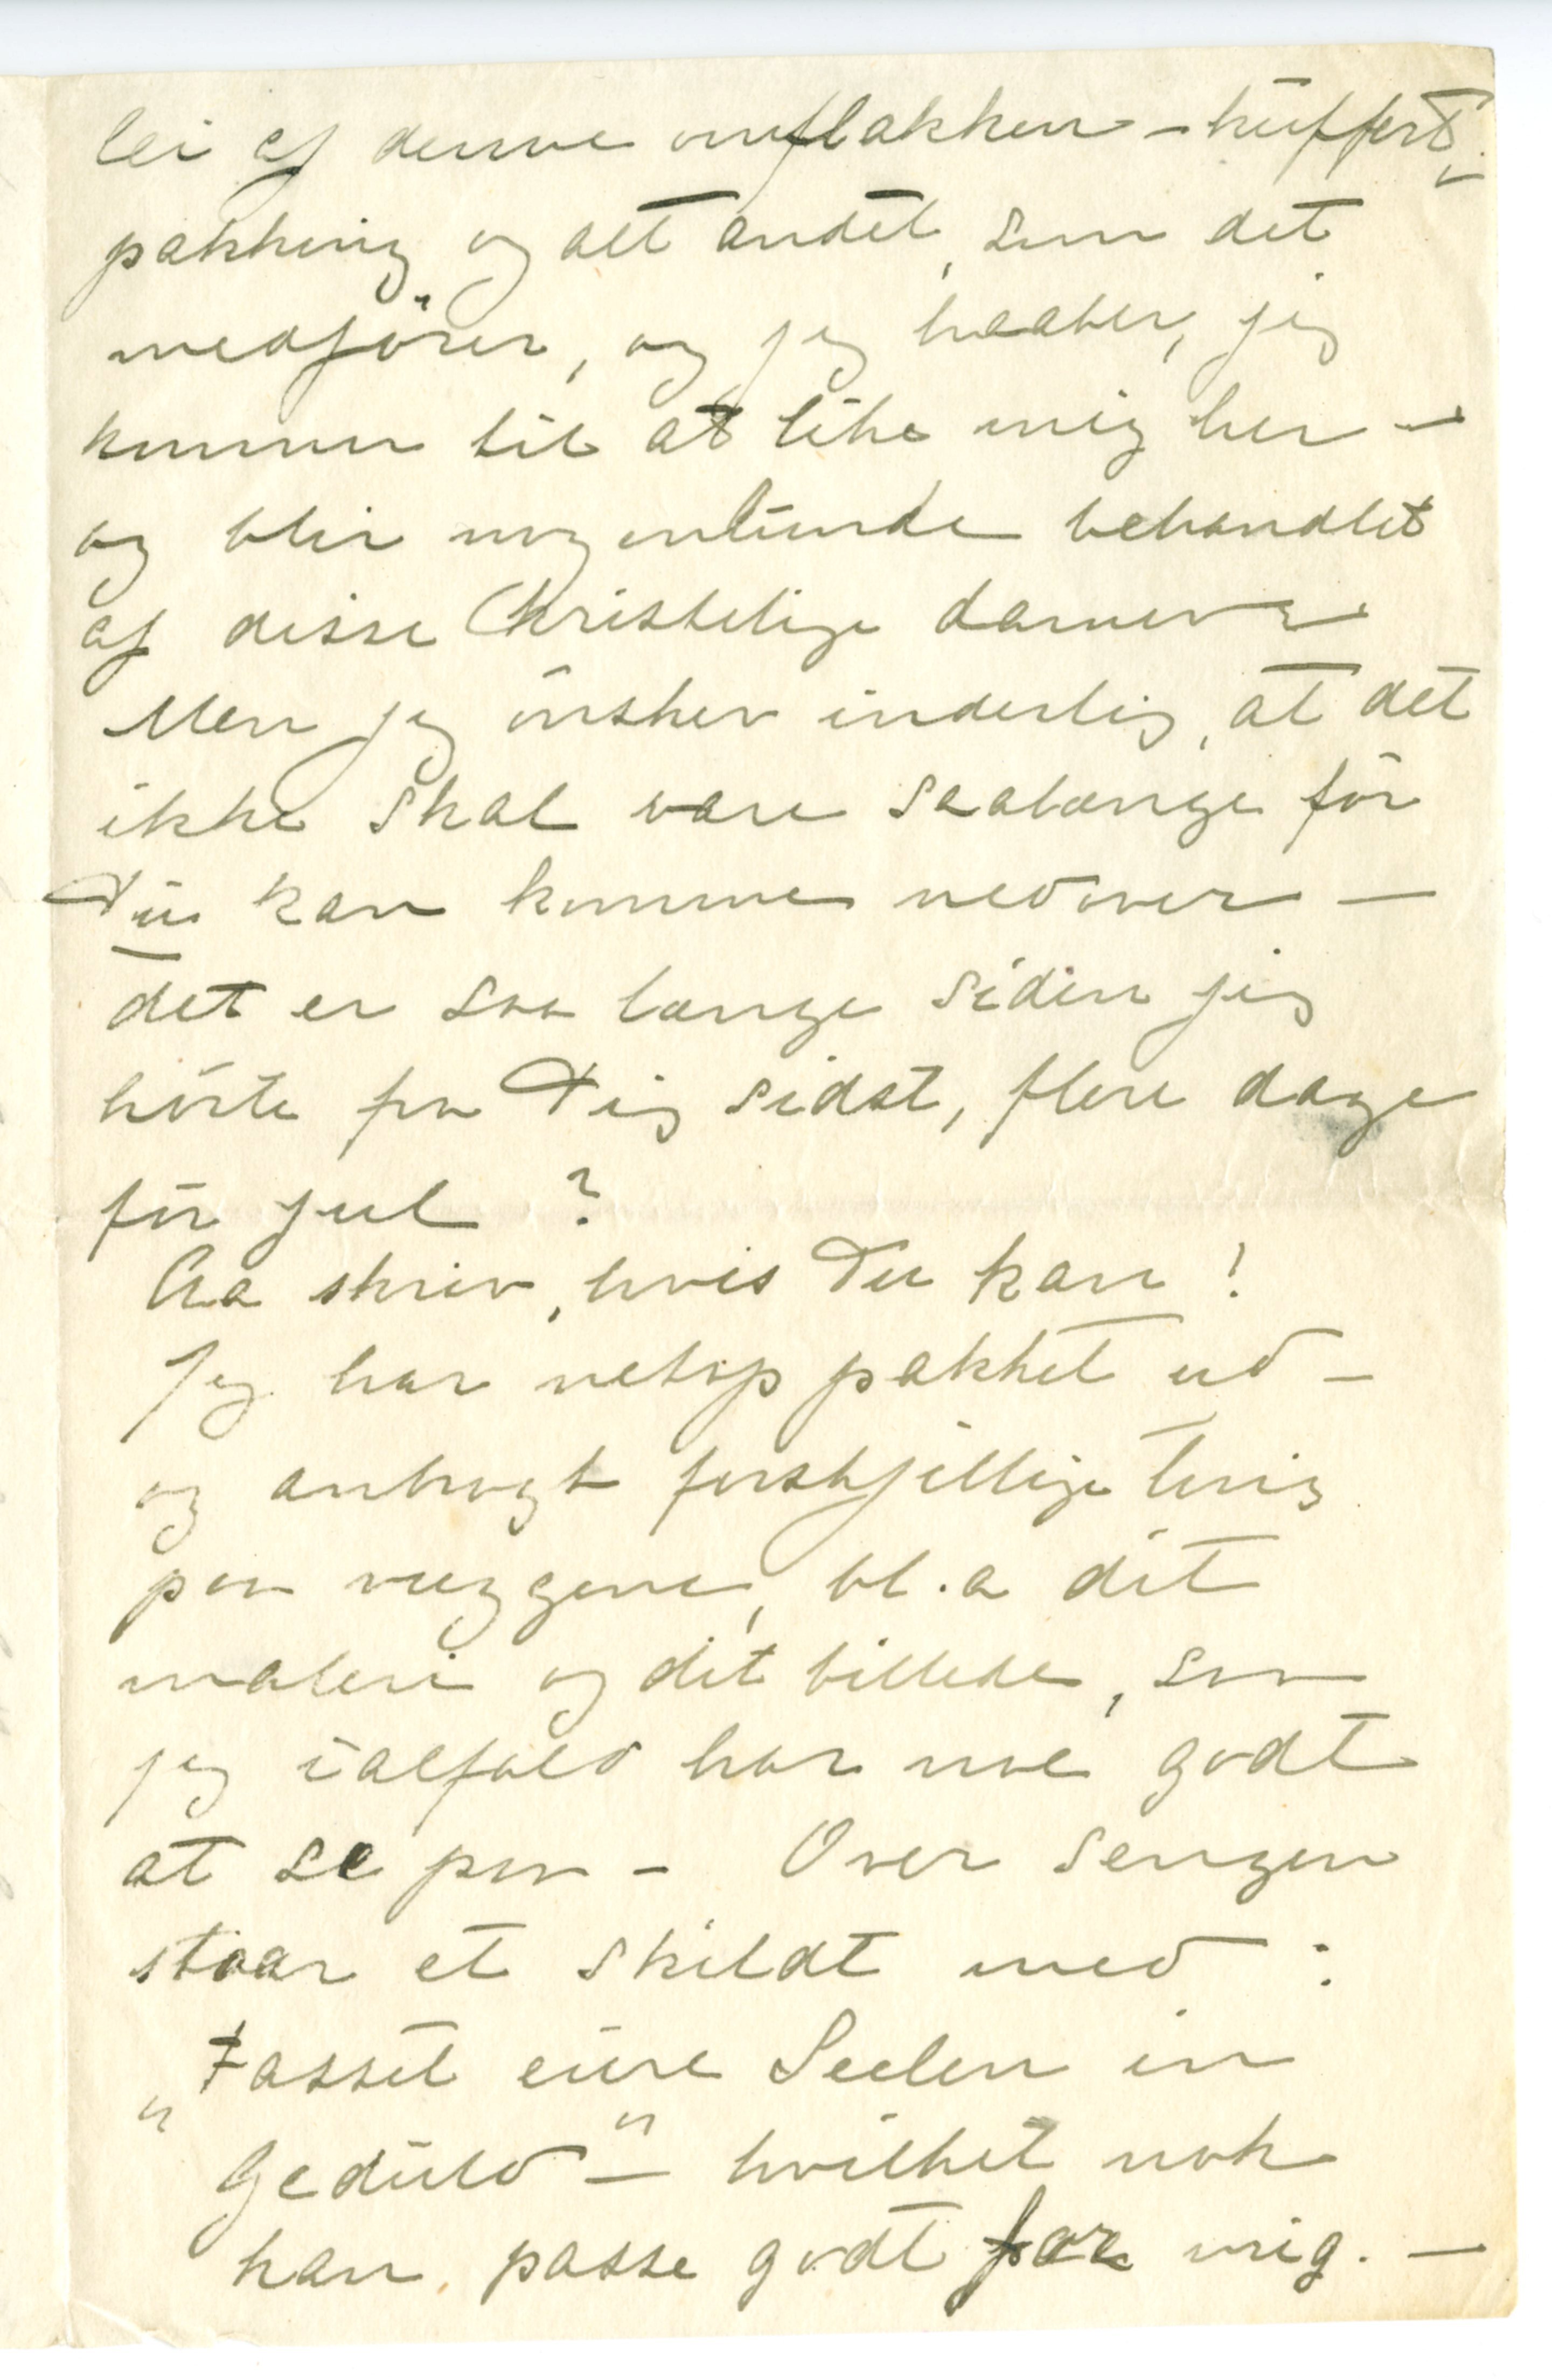 lei af denne omflakken – kuffert-
pakking og alt andet, som det
medfører, og jeg haaber, jeg
kommer til at like mig her –
og blir nogenlunde behandlet
af disse Christelige damer –
Men jeg ønsker inderlig, at det
ikke skal vare saalænge før
Du kan komme nedover –
det er saa længe siden jeg
hørte fra Dig sidst, flere dage
før jul ?
Aa skriv, hvis Du kan !
Jeg har netop pakket ud –
og anbragt forskjellige ting
paa væggene, bl. a dit
maleri og dit billede, som
jeg ialfald har noe godt
at se paa – Over sengen
staar et skildt med :
„Fasset eure Seelen in
Geduld“ – hvilket nok
kan passe godt for mig. –